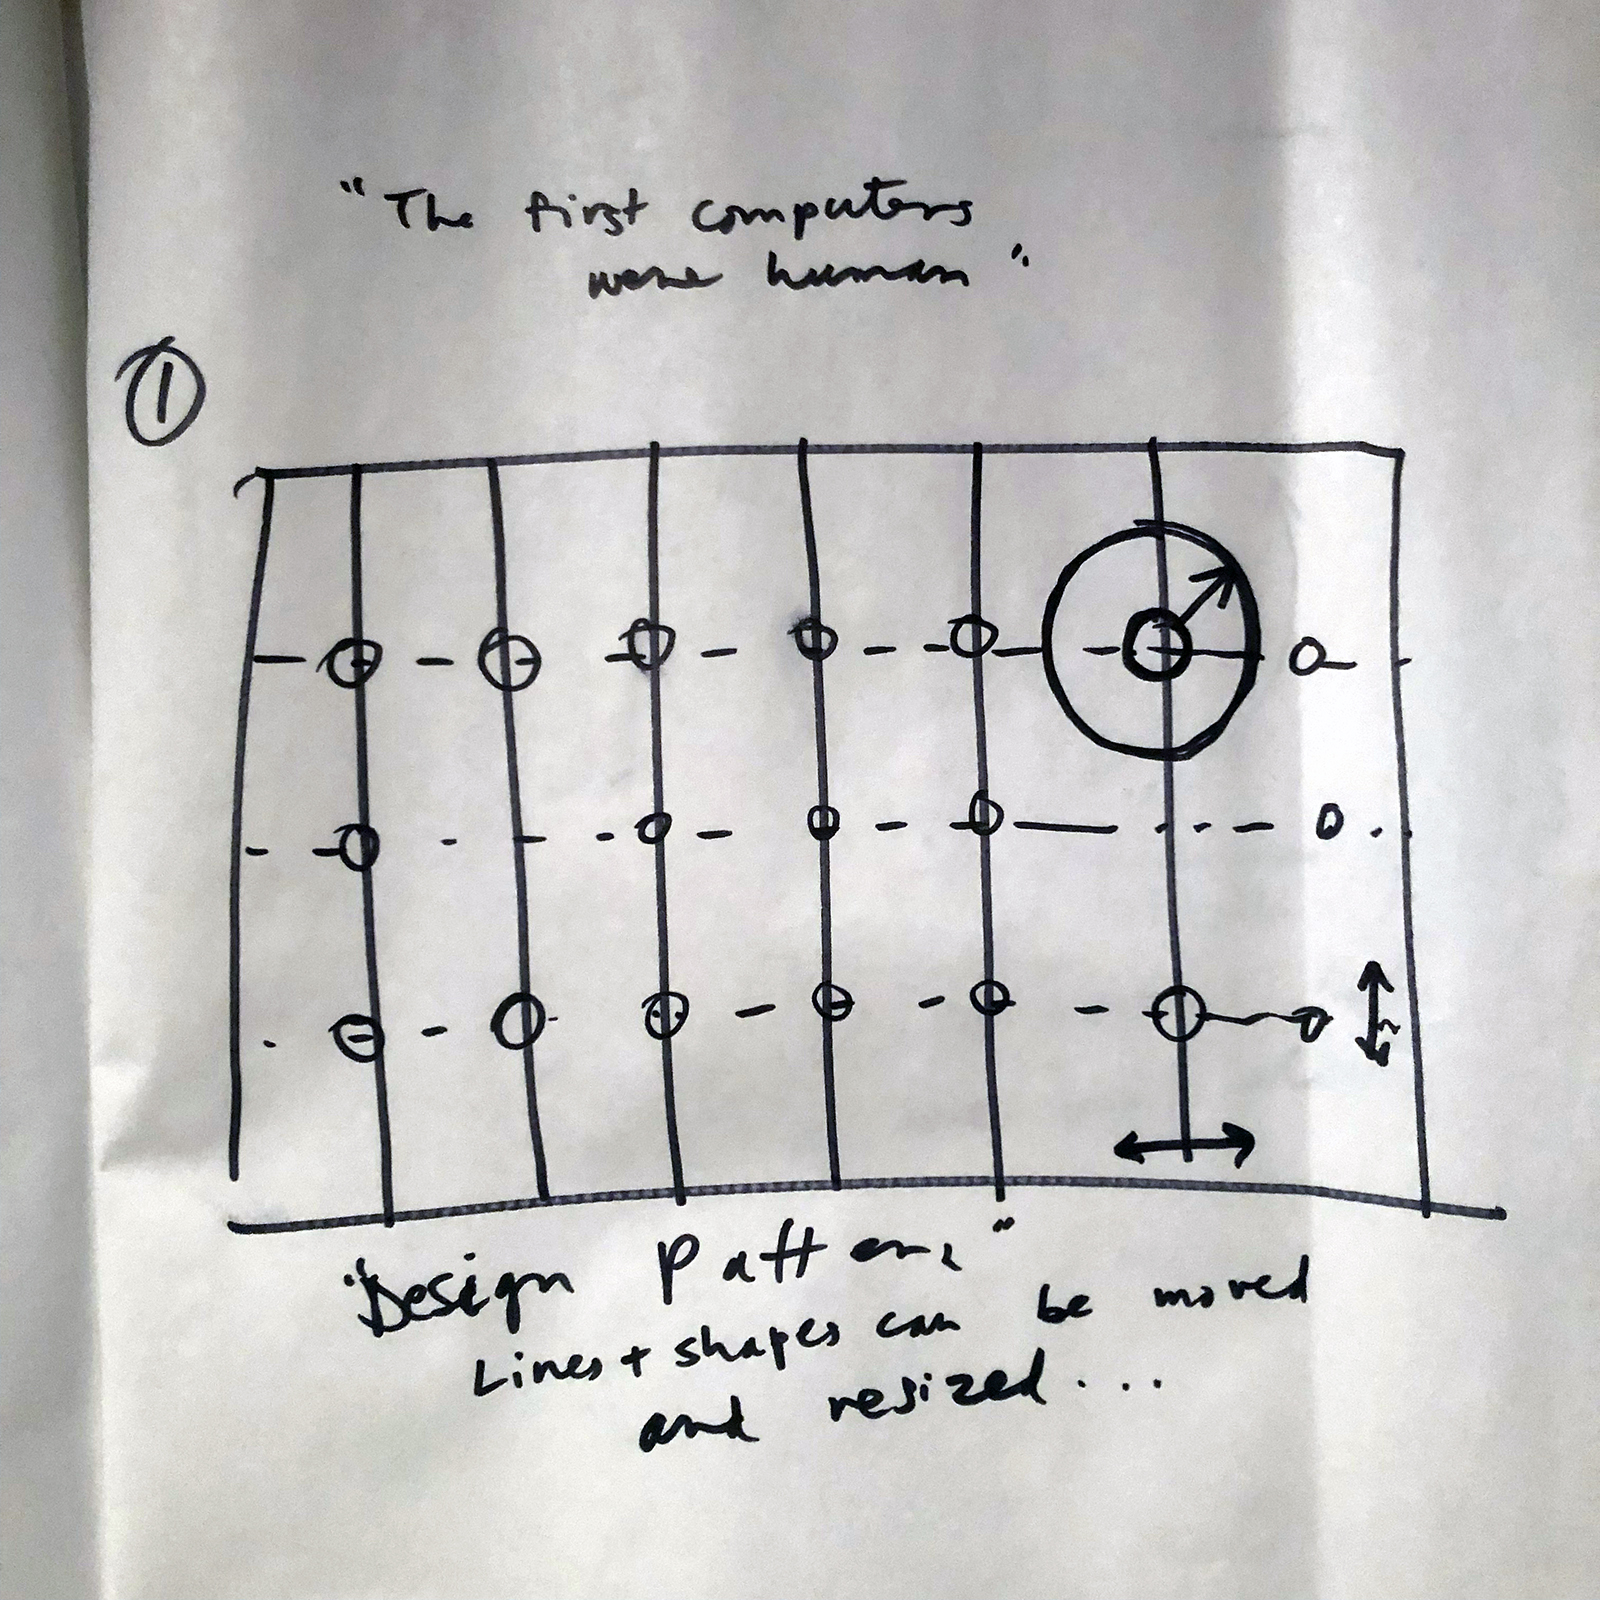 "The first computers
were human"
①
"Design Pattern"
Lines + shapes can be moved
and resized...